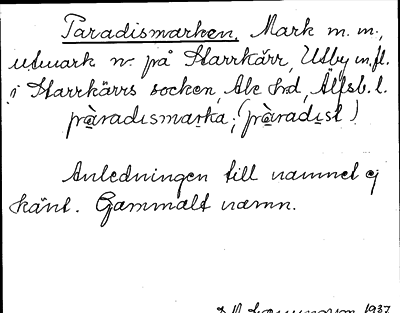 Paradismarken. Mark m.m.,
utmark n. på Starrkärr, Utby m.fl.
i Starrkärrs socken, Ale hd, Älfsb. l.
pàradısmarka; (pàradıst)
Anledningen till namnet ej
känt. Gammalt namn.
1937